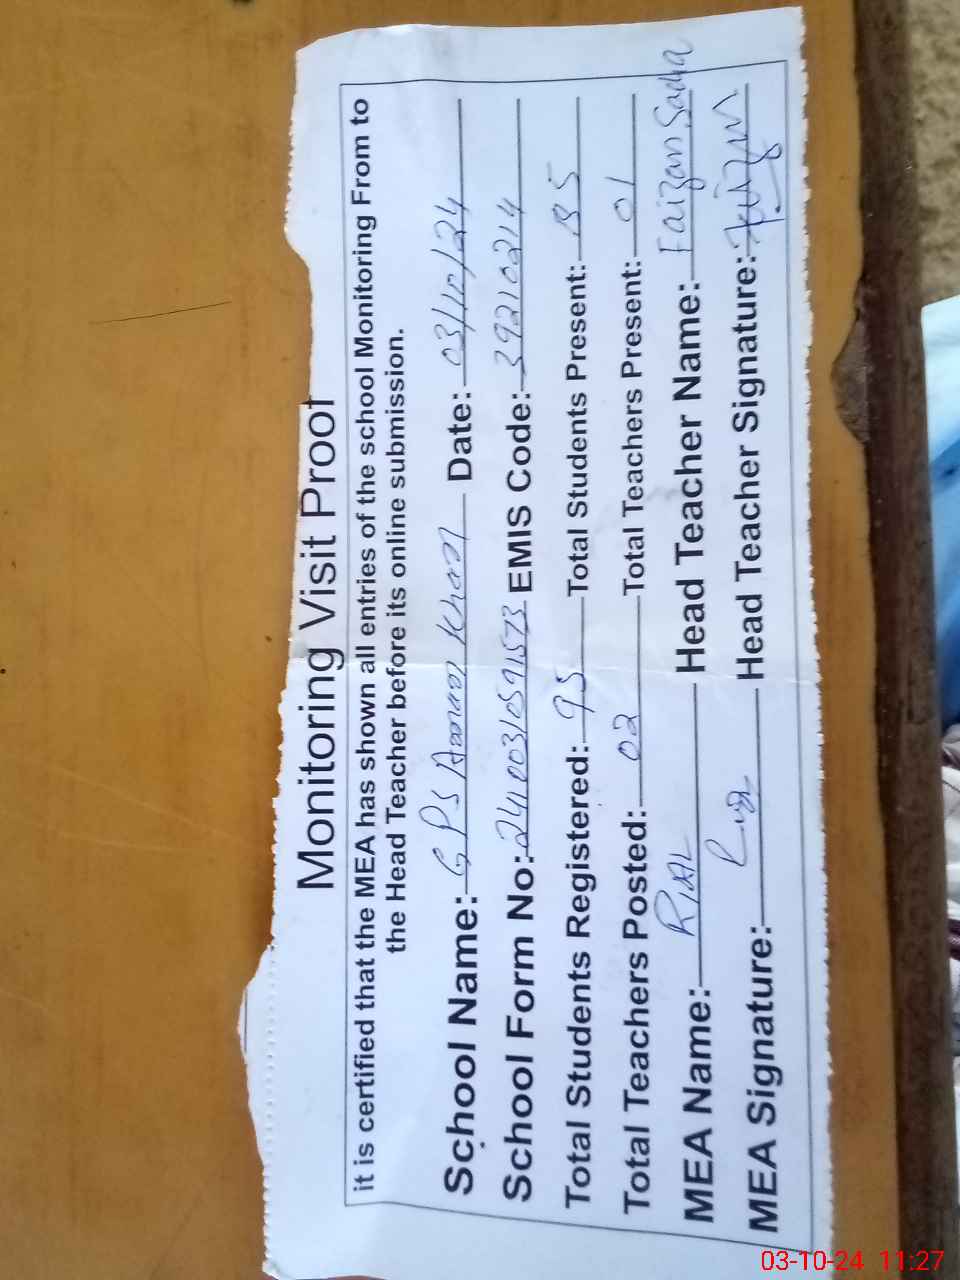 Monitoring Visit Proof
it is certified that the MEA has shown all entries of the school Monitoring From to
the Head Teacher before its online submission.
School Name: GPS Aman Khan Date: 03/10/24
School Form No: 2410031059 1573 EMIS Code: 39210214
Total Students Registered: 95 Total Students Present:
Total Teachers Posted: 02 Total Teachers Present: 01
MEA Name: Head Teacher Name: Faizan
MEA Signature: Head Teacher Signature:
03-10-24 11:27